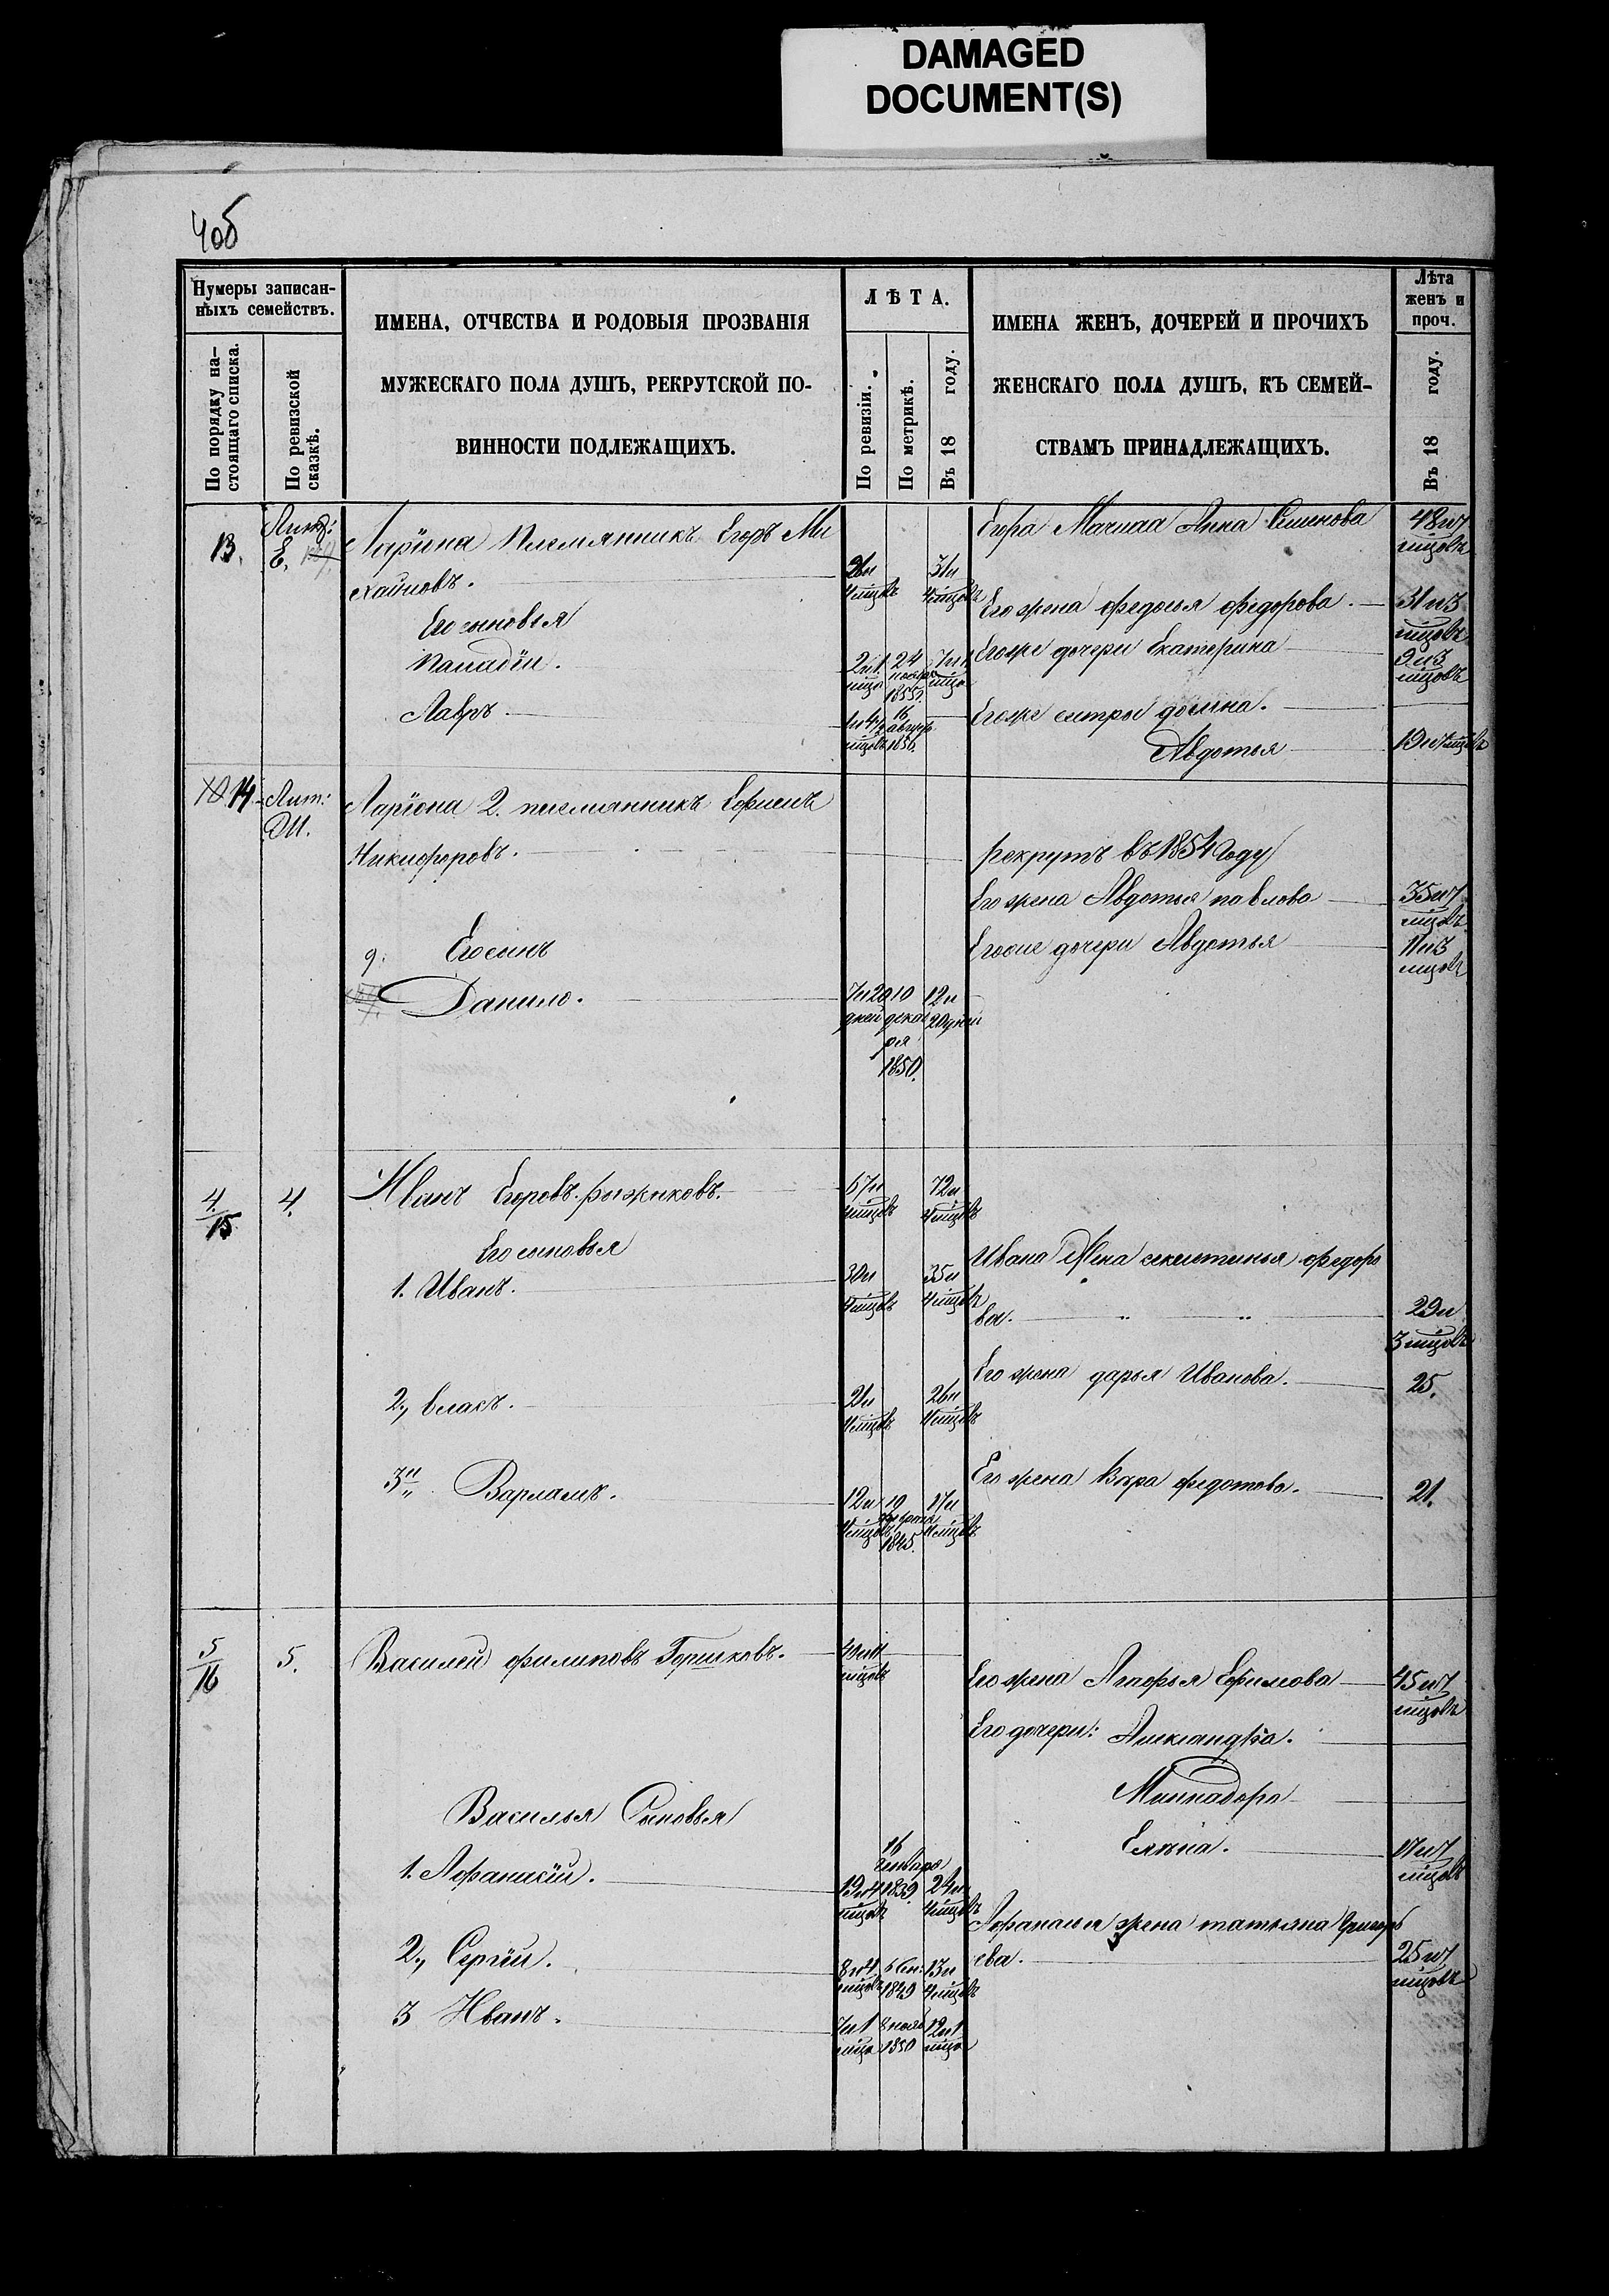 DAMAGED
DOCUMENT(S)
4об
Нумеры записан-
ныхъ семействъ.
По порядку на-
стоящаго списка.
По ревизской
сказкѣ.
ИМЕНА, ОТЧЕСТВА И РОДОВЫЯ ПРОЗВАНІЯ
МУЖЕСКАГО ПОЛА ДУШЪ, РЕКРУТСКОЙ ПО-
ВИННОСТИ ПОДЛЕЖАЩИХЪ.
ЛѢТА.
По ревизіи.
По метрикѣ.
Въ 18 году.
ИМЕНА ЖЕНЪ, ДОЧЕРЕЙ И ПРОЧИХЪ
ЖЕНСКАГО ПОЛА ДУШЪ, КЪ СЕМЕЙ-
СТВАМЪ ПРИНАДЛЕЖАЩИХЪ.
Лѣта
женъ и
проч.
Въ 18 году.
13.
Лит:
Е.
Ларіона Племянникъ Егоръ Ми
хайловъ.
26 и
4 мцовъ
31 и
4 мцовъ
Егора Мачиха Анна Семенова
48 и 7
мцовъ
Его жена федосья федорова.
31 и 3
мцовъ
Его сыновья
Паладіи.
2 и 1
мца
24
ноября
1855.
7 и 1
мца
Егоже дочери Екатерина
9 и 3
мцовъ
Лавръ.
1 и 4½
мцовъ
16
августа
1856.
Егоже сестры
Авдотья
19 и 7 мцовъ
14.
Лит:
Ларіона 2. племянникъ Ефимъ
Никифоровъ.
рекрутъ въ 1854 году
Его жена Авдотья павлова
35 и 7
мцовъ
Его сынъ
Егоже дочери Авдотья
11 и 3
мцовъ
9.
Данило.
7 и 20
дней
10
дека
бря
1850.
12 и
20 дней
4.
15
4.
Иванъ Егоровъ рыжиковъ.
67 и
4 мцовъ
72 и
4 мцовъ
Его сыновья
1. Иванъ.
30 и
4 мцовъ
35 и
4 мцовъ
Ивана Жена секлетинья федоро
ва. " "
29 и
3 мцовъ
2., власъ.
21 и
4 мцовъ
26 и
4 мцовъ
Его жена дарья Иванова.
25.
3" Варламъ.
12 и
4 мцовъ
19
1845.
17 и
4 мцовъ
Его жена Вѣра федотова.
21.
5
16
5.
Василей филиповъ Горшковъ.
40 и 4
мцовъ
Его жена Агафья Ефимова
45 и 7
мцовъ
Его дочери: Александра.
Миннадора
Елѣна.
17 и 7
мцовъ
Василья Сыновья
1. Афанасій.
19 и 4
мцовъ
16
Генваря
1839
24 и
4 мцовъ
Афанасья жена татьяна Григорь
ева.
25 и 7
мцовъ
2., Сергій.
8 и 4
мцовъ
6 Сен:
1849
13 и
4 мцовъ
3 Иванъ.
7 и 1
мца
8 нояб
1850
12 и 1
мца